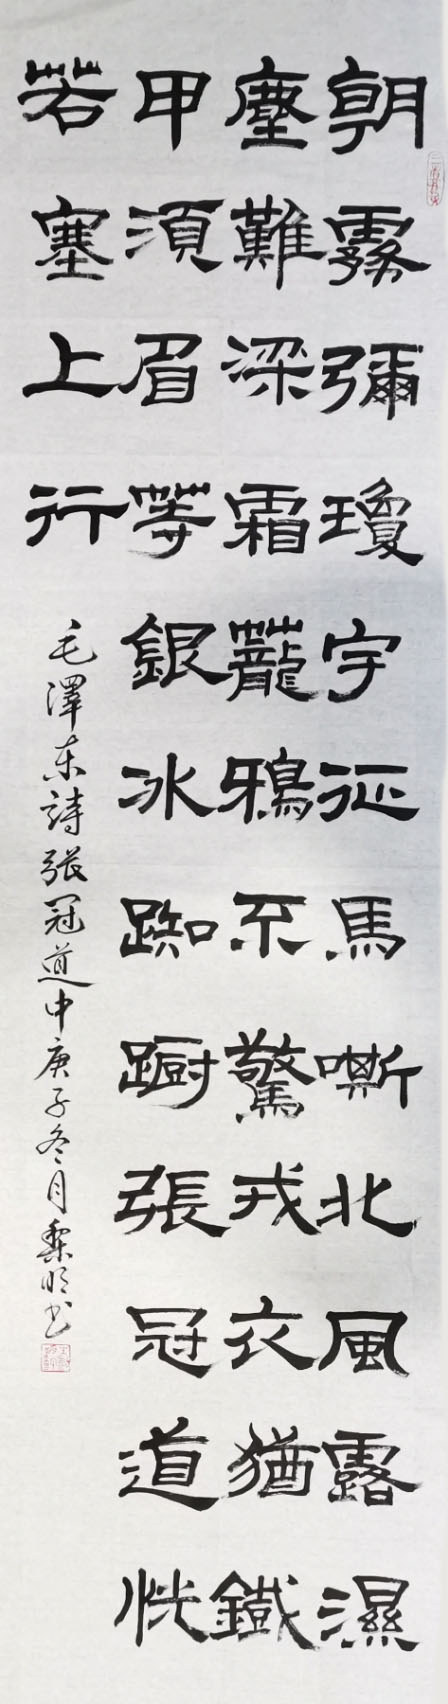 朝霧彌瓊宇征馬嘶北風露濕
塵難染霜蘢鴉不驚戎衣猶鐵
甲須眉等銀冰踟蹰張冠道恍
若塞上行
毛澤东詩張冠道中庚子冬月黎明书